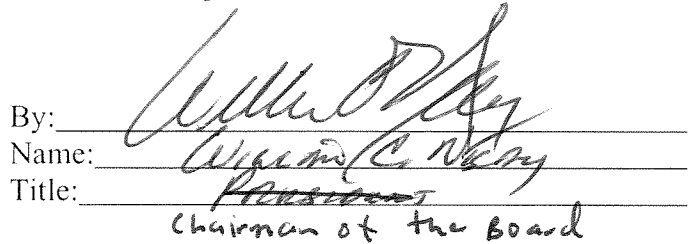 By:
Name: William C.
Title: President
Chairman of the Board